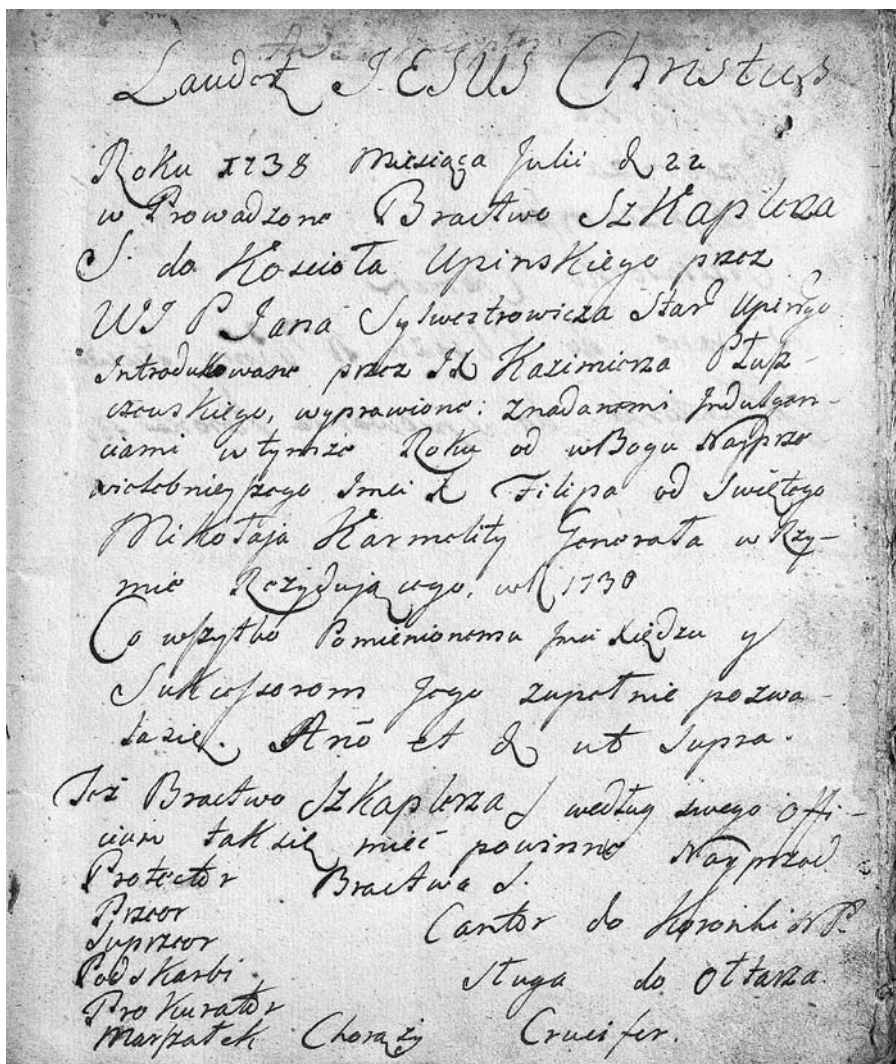 Laudet JESUS Christus
Roku 1738 Miesiąca Julii d 22
w Prowadzone Bractwo SzKaplerza
S. do Kościoła Upinskiego przez
WJ P Jana Sylwestrowicza Star Upinsgo
Introdukowane przez Jx Kazimierza Płup-
czewskiego, wyprawione: z nadanemi Indulgen-
ciami w tymże Roku od w Bogu Nayprze
wielebnieyszego Jmci X Filipa od Swiętego
Mikołaja Karmelity Generała w Rzy-
mie Rezydującego, w R 1738
Co wszytko Pomienionemu Jmci Xiędzu y
Sukcessorom Jego zupełnie pozwa-
la się. Anō et d ut supra.
Też Bractwo SzKaplerza S według swego offi-
cium tak się mieć powinno Nayprzod
Protector Bractwa S.
Przeor
Suprzeor Cantor do Koronki NP.
PodsKarbi Sługa do Ołtarza.
ProKurator
Marszałek Chorąży Crucifer.